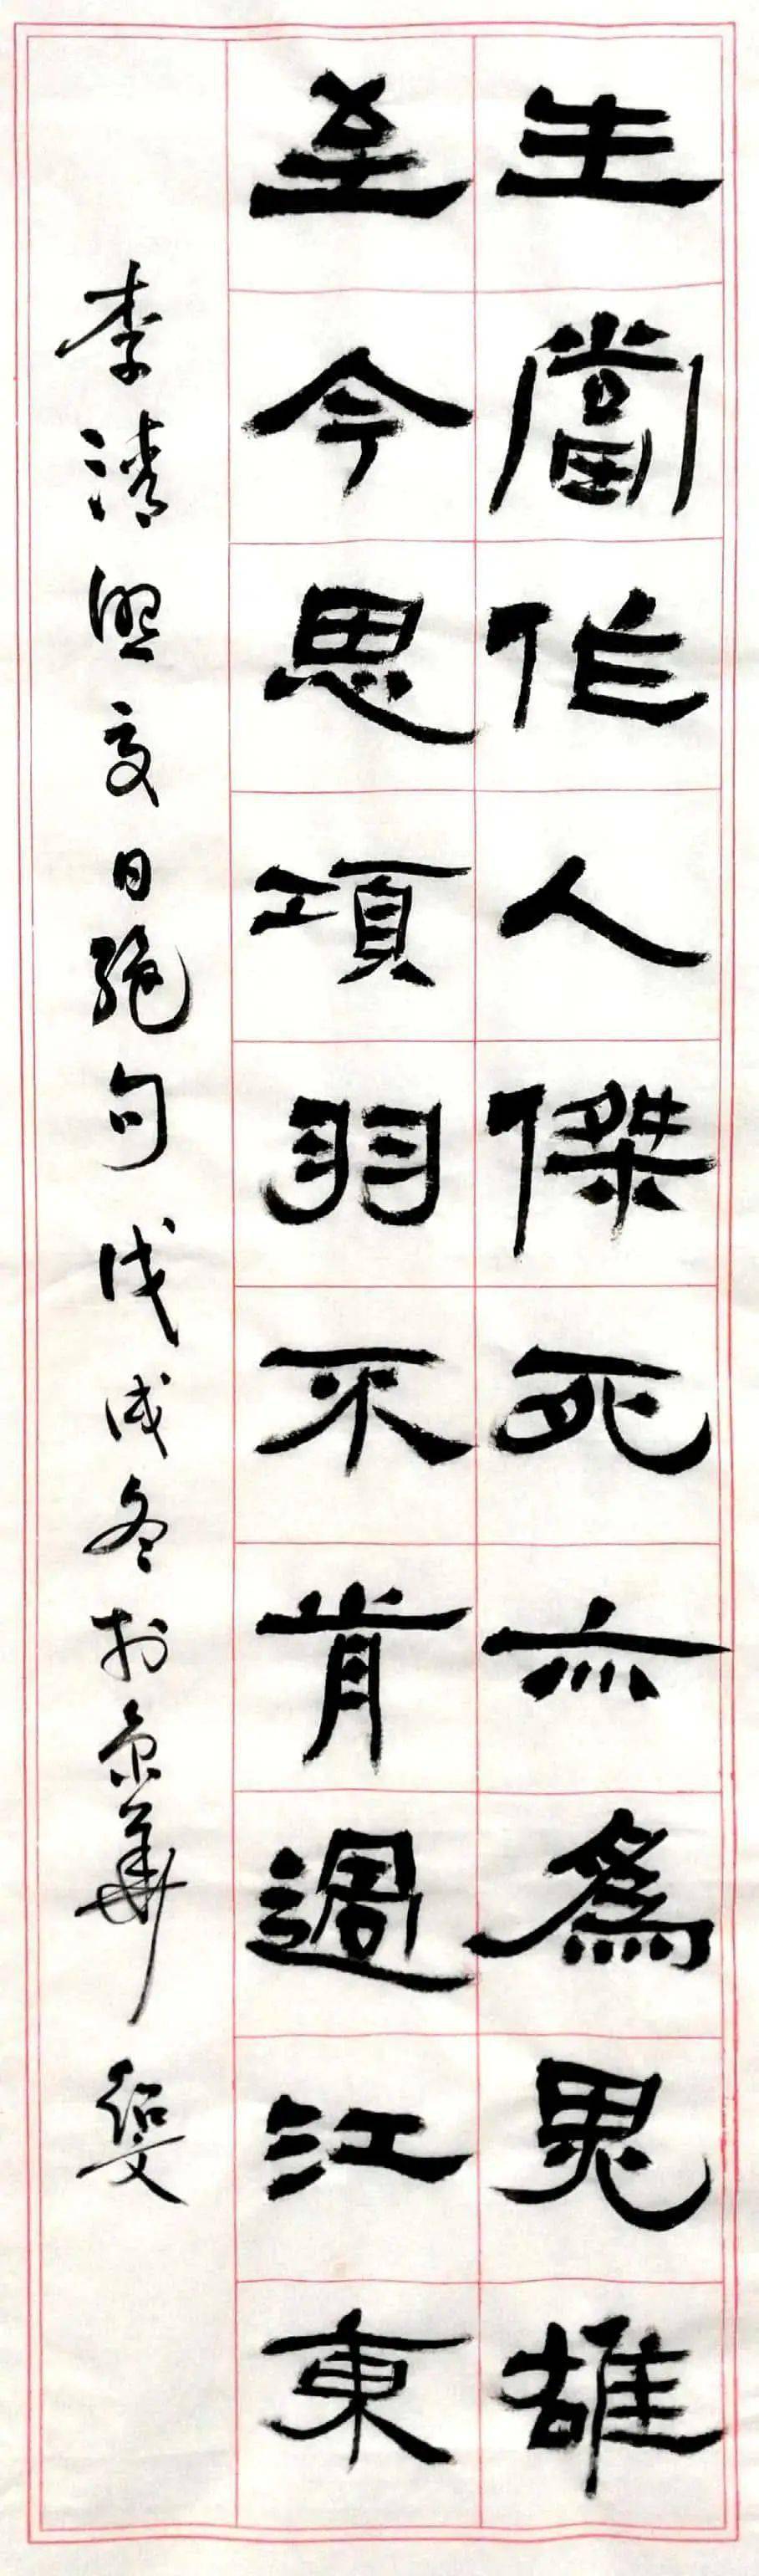 生當作人傑死亦為鬼雄
至今思項羽不肯過江東
李清照夏日絕句戊戌冬於京華